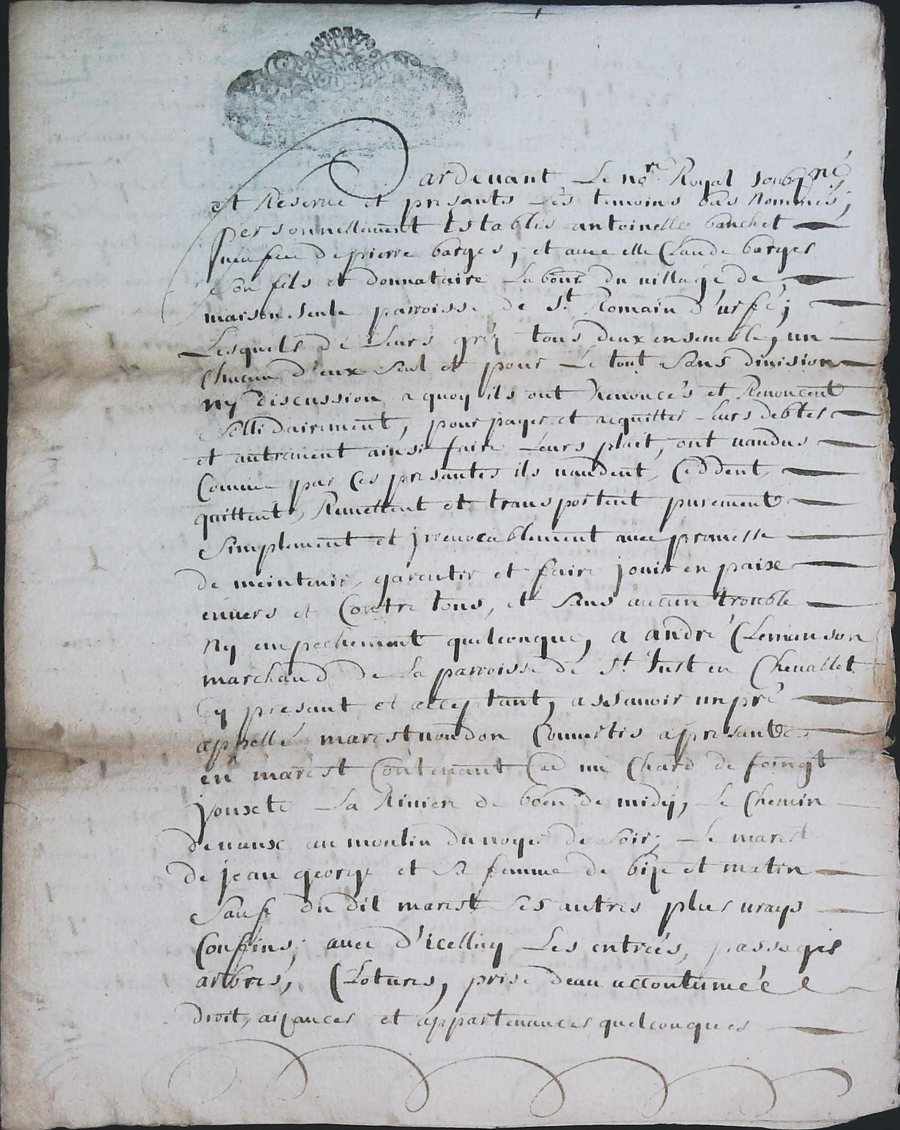 Pardevant Le no.re Royal soubz.né
et Reservé et presants Les temoins bas Nommes,
personnellement Establis antoinette banchet
veufue de pierre barges, et avec elle Claude barges
son fils et donnataire Labour du village de
maison seule parroisse de St Romain d'urfé;
Lesquels de Leurs gréz tous deux ensemble, un
Chacun d'eux seul et pour Le tout sans division
ny discussion aquoy ils ont Renoncés et Renoncent
sollidairement, pour payer et acquitter Leurs debtes
et autrement ainsi faire Leurs plait, ont vandus
Comme par Ces presantes ils vandent, Ceddent,
quittent, Remettent et transportent purement
simplement et jrrevocablement avec promesse
de meintenir, garentir et faire jouir en paixe
envers et Contre tous, et sans aucun trouble
Ny empechement quelconque, a andré Clemanson
marchand de La parroisse de St Just en Chevallet
Cy presant et acceptant, asscavoir un pré
appellé marestvondon Convertis apresant
en marest Contenant un Chard de foingt
jouxte La Riviere de boën de midy, Le Chemin
de vaux au moulin du noyé de soir, Le marest
de jean george et sa femme de bize et matin
sauf du dit marest ses autres plus vrays
Confins; avec d'icelluy Les entrées, passages
arbres, Clotures, prise deau accoutumée
droit, aizances et appartenances quelconques